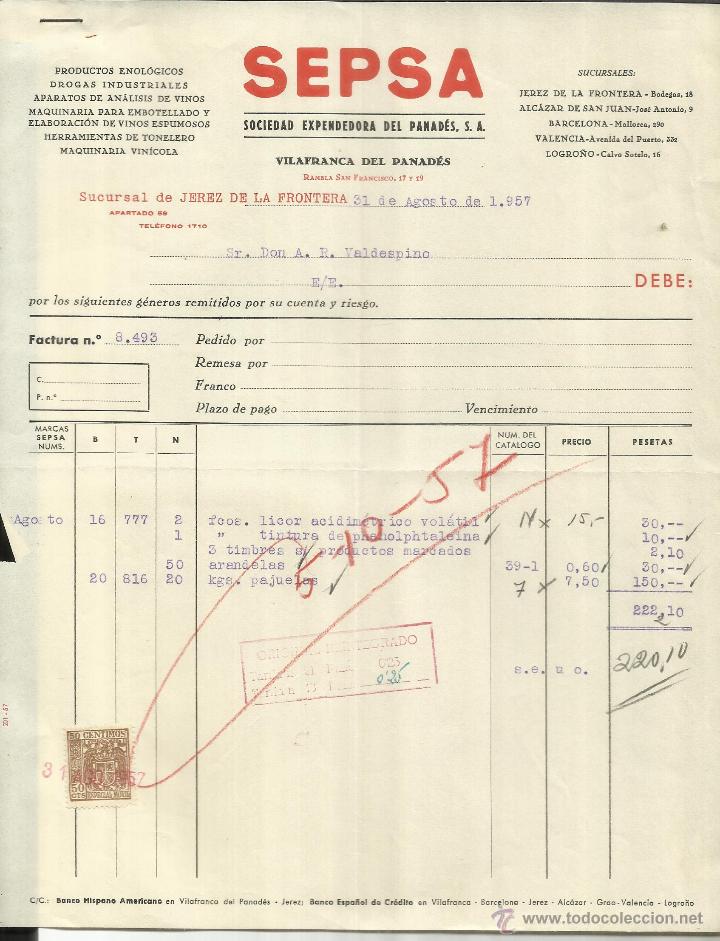 PRODUCTOS ENOLÓGICOS
DROGAS INDUSTRIALES
APARATOS DE ANÁLISIS DE VINOS
MAQUINARIA PARA EMBOTELLADO Y
ELABORACIÓN DE VINOS ESPUMOSOS
HERRAMIENTAS DE TONELERO
MAQUINARIA VINÍCOLA
SEPSA
SOCIEDAD EXPENDEDORA DEL PANADÉS, S. A.
VILAFRANCA DEL PANADÉS
RAMBLA SAN FRANCISCO, 17 Y 19
SUCURSALES:
JEREZ DE LA FRONTERA - Bodegas, 18
ALCÁZAR DE SAN JUAN - José Antonio, 9
BARCELONA - Mallorca, 290
VALENCIA - Avenida del Puerto, 332
LOGROÑO - Calvo Sotelo, 16
Sucursal de JEREZ DE LA FRONTERA 31 de Agosto de 1.957
APARTADO 58
TELÉFONO 1710
Sr. Don A. R. Valdespino
E/E.
DEBE:
por los siguientes géneros remitidos por su cuenta y riesgo.
Factura n.º 8.493
Pedido por
Remesa por
C.
Franco
P. n.º
Plazo de pago Vencimiento
MARCAS SEPSA NUMS. B T N NUM. DEL CATALOGO PRECIO PESETAS
5-10-57
Agosto 16 777 2 fcos. licor acidimétrico volátil N x 15,- 30,--
1 " tintura de phenolphtaleina 10,--
3 timbres s/ productos marcados 2,10
50 arandelas 39-1 0,60 30,--
20 816 20 kgs. pajuelas 7 x 7,50 150,--
222,10
2
s.e.u o. 220,10
ORIGINAL REINTEGRADO
0'25
50 CENTIMOS
50 CTS ESPECIAL MOVIL
31 AGO 1957
201-57
C/C.: Banco Hispano Americano en Vilafranca del Panadés - Jerez; Banco Español de Crédito en Vilafranca - Barcelona - Jerez - Alcázar - Grao-Valencia - Logroño
www.todocoleccion.net